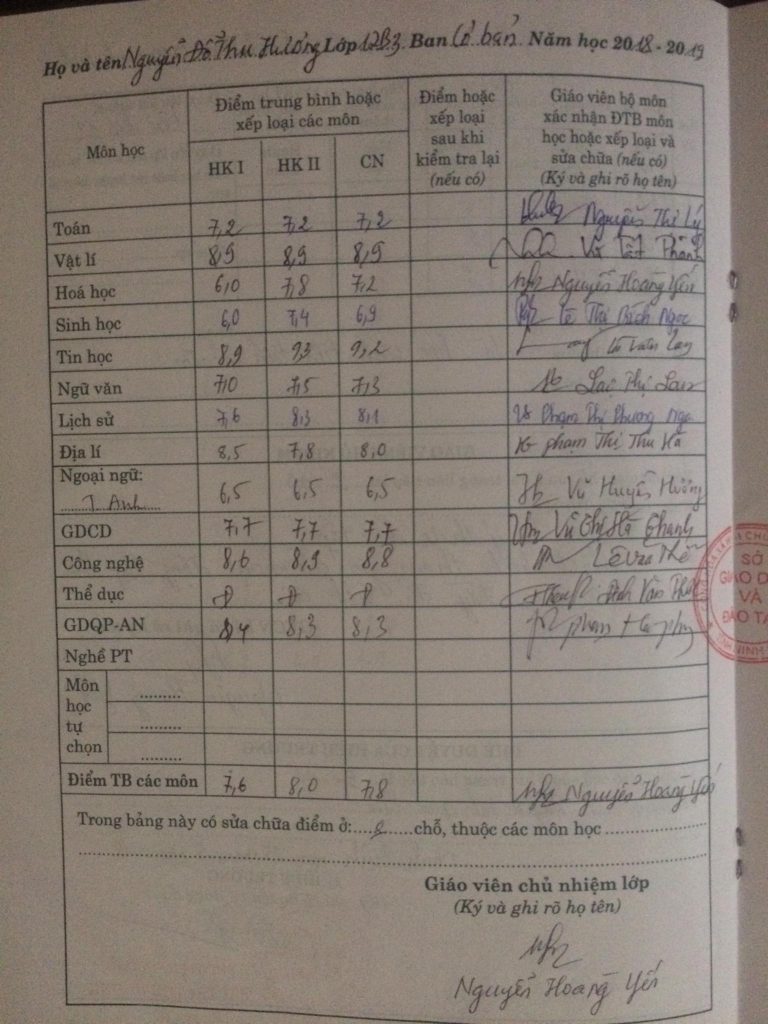 Họ và tên Nguyễn Đỗ Thu Hương Lớp 12B3. Ban Cơ bản. Năm học 2018 - 2019
Môn học
Điểm trung bình hoặc
xếp loại các môn
HK I HK II CN
Điểm hoặc
xếp loại
sau khi
kiểm tra lại
(nếu có)
Giáo viên bộ môn
xác nhận ĐTB môn
học hoặc xếp loại và
sửa chữa (nếu có)
(Ký và ghi rõ họ tên)
Toán 7,2 7,2 7,2 Nguyễn Thị Lý
Vật lí 8,9 8,9 8,9 Vũ Tất
Hoá học 6,0 7,8 7,2 Nguyễn Hoàng Yến
Sinh học 6,0 7,4 6,9 Lê Thị Bích Ngọc
Tin học 8,9 9,3 9,2
Ngữ văn 7,0 7,5 7,3 Lại Thị Lan
Lịch sử 7,6 8,3 8,1 Phạm Thị Phương Nga
Địa lí 8,5 7,8 8,0 Phạm Thị Thu Hà
Ngoại ngữ:
T. Anh 6,5 6,5 6,5 Vũ Huyền Hương
GDCD 7,7 7,7 7,7 Vũ Thị Hà Thanh
Công nghệ 8,6 8,9 8,8 Lê Văn
Thể dục Đ Đ Đ Đinh Văn
GDQP-AN 8,4 8,3 8,3
Nghề PT
Môn
học
tự
chọn
.........
.........
.........
Điểm TB các môn 7,6 8,0 7,8 Nguyễn Hoàng Yến
Trong bảng này có sửa chữa điểm ở:.........chỗ, thuộc các môn học ..................
Giáo viên chủ nhiệm lớp
(Ký và ghi rõ họ tên)
Nguyễn Hoàng Yến
SỞ
GIÁO D
VÀ
ĐÀO TẠ